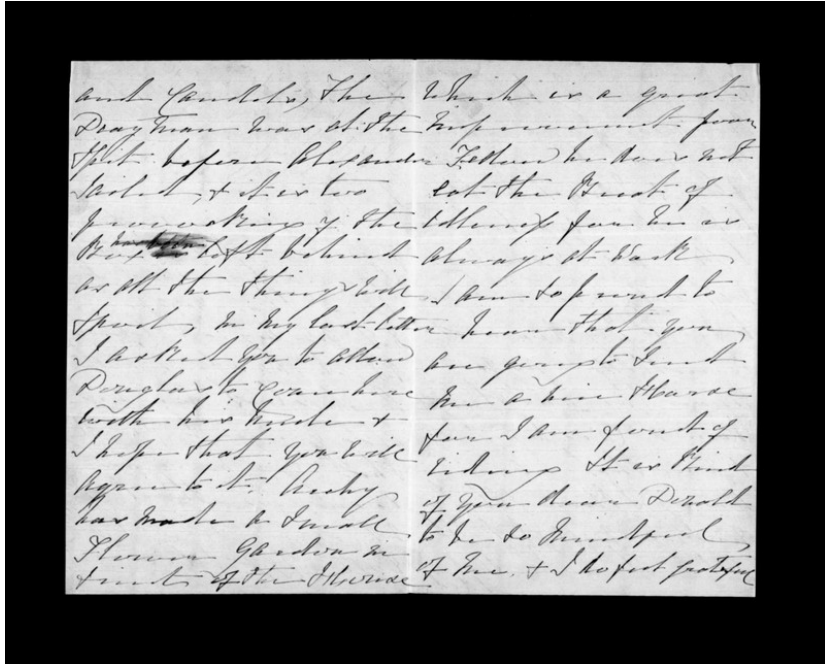 and Candels, The
Drayman was at the
Spit before Alexander
sailed, & it is too
provoking of the
Box left behind
as all the things will
Spoil, in my last letter
I asked you to allow
Douglas to come here
with his Uncle &
I hope that you will
agree to it. Archy
has made a small
Flower Garden in
front of the House
which is a great
improvement poor
Fellow he does not
eat the Bread of
Idleness for he is
always at Work,
I am so proud to
hear that you
are going to send
me a nice Horse
for I am fond of
riding It is kind
of you dear Donald
to be so mindful
of me, & I do feel grateful